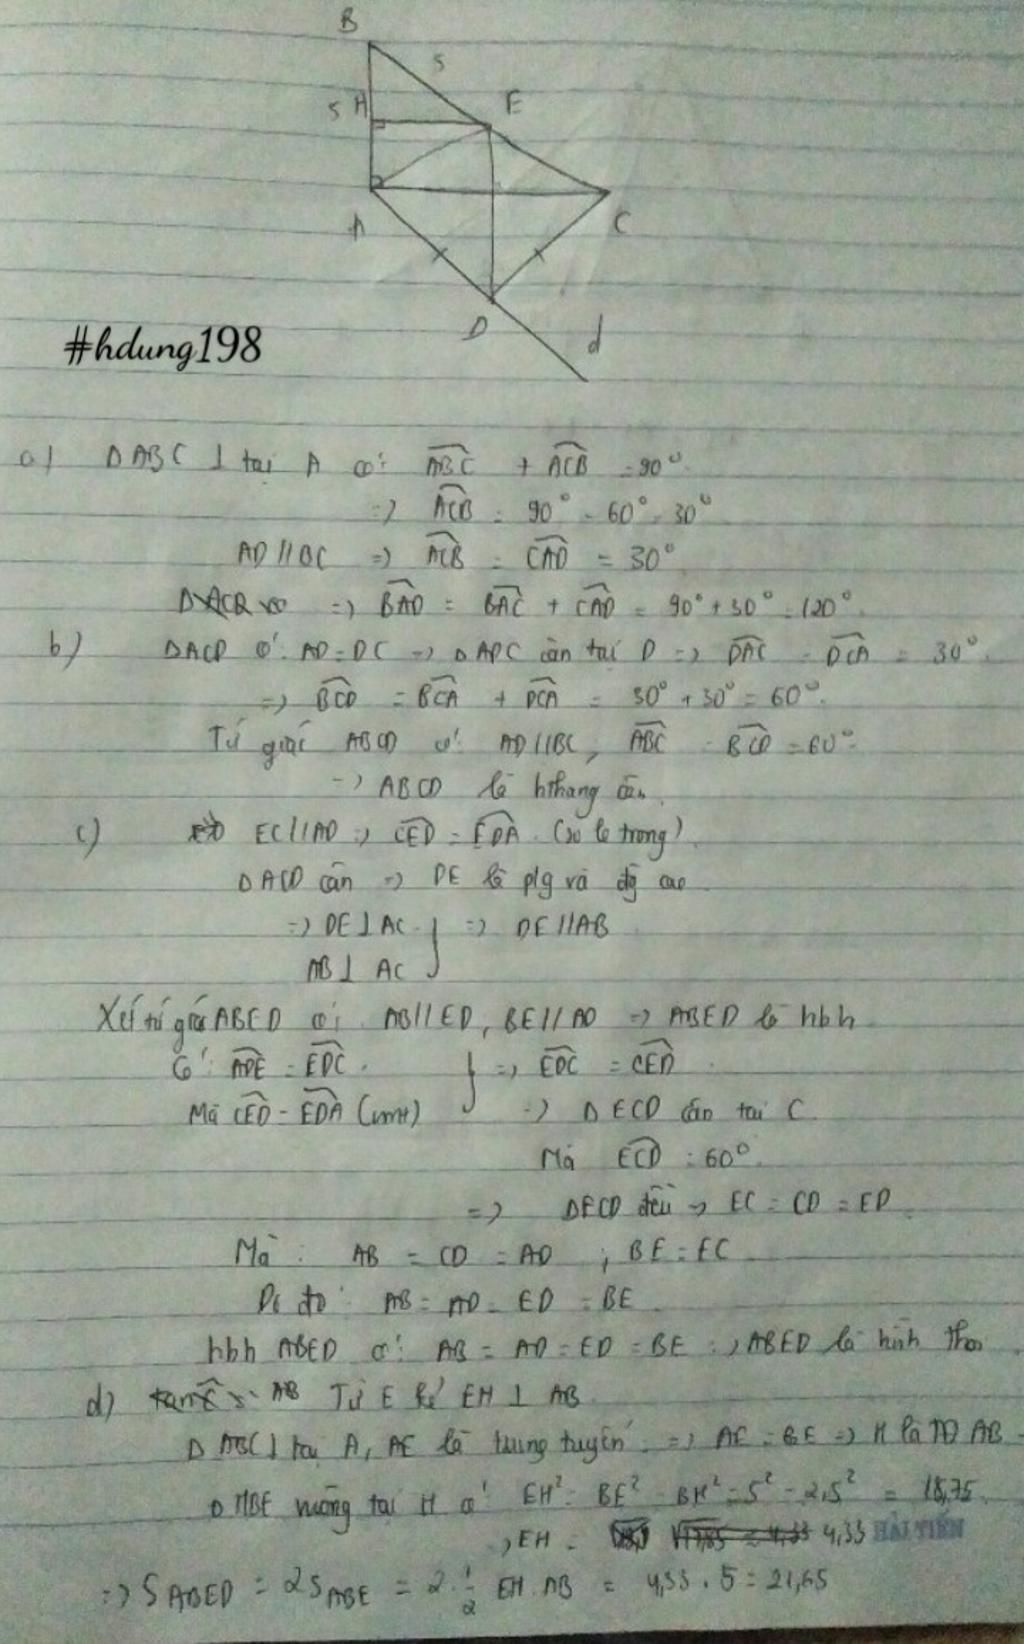 B
5
5 H
E
A
C
D
d
#hdung198
a) ΔABC ⊥ tại A có: ABC + ACB = 90°
=> ACB = 90° - 60° = 30°
AD//BC => ACB = CAD = 30°
=> BAD = BAC + CAD = 90° + 30° = 120°
b) ΔACD có: AD = DC => ΔADC cân tại D => DAC = DCA = 30°
=> BCD = BCA + DCA = 30° + 30° = 60°.
Tứ giác ABCD có: AD//BC, ABC = BCD = 60°
=> ABCD là hthang cân.
c) EC//AD => CED = EDA (so le trong)
ΔACD cân => DE là p/g và đg cao
=> DE ⊥ AC } => DE//AB
AB ⊥ AC
Xét tứ giác ABED có: AB//ED, BE//AD => ABED là hbh
Có: ADE = EDC. } => EDC = CED
Mà CED = EDA (cmt) => ΔECD cân tại C
Mà ECD = 60°
=> ΔECD đều => EC = CD = ED
Mà: AB = CD = AD ; BE = EC
Do đó: AB = AD = ED = BE
hbh ABED có: AB = AD = ED = BE => ABED là hình thoi
d) Từ E kẻ EH ⊥ AB
Δ ABC ⊥ tại A, AE là trung tuyến => AE = BE => H là TĐ AB
Δ HBE vuông tại H có: EH² = BE² - BH² = 5² - 2,5² = 18,75
=> EH = 4,33 HẢI TIẾN
=> S ABED = 2S ABE = 2. 1/2 EH. AB = 4,33 . 5 = 21,65